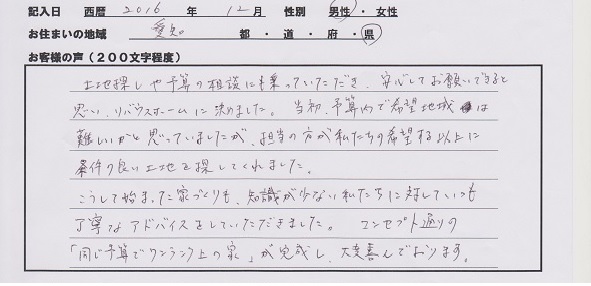 記入日 西暦 2016 年 12月 性別 男性・女性
お住まいの地域 愛知 都・道・府・県
お客様の声（200文字程度）
土地探しや予算の相談にも乗っていただき、安心してお願いできると
思い、リバウスホームに決めました。当初、予算内で希望地域は
難しいかと思っていましたが、担当の方が私たちの希望する以上に
条件の良い土地を探してくれました。
こうして始まった家づくりも、知識が少ない私たちに対していつも
丁寧なアドバイスをしていただきました。コンセプト通りの
「同じ予算でワンランク上の家」が完成し、大変喜んでおります。